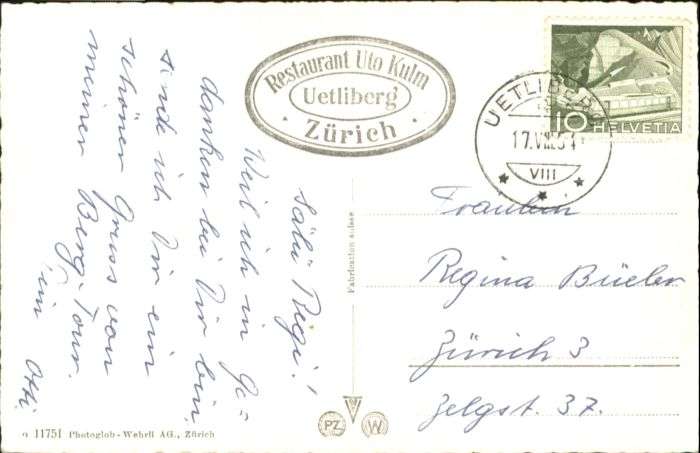 Restaurant Uto Kulm
Uetliberg
Zürich
UETLIBERG
17.VIII.51
VIII
10 HELVETIA
Salü Regi!
Weil ich in Ge=
danken bei Dir bin
sende ich Dir ein
schöner Gruss von
meiner Berg-Tour.
Otti
Fräulein
Regina Büeler
Zürich 3
Zelgst. 37.
Fabrication suisse
PZ W
11751 Photoglob-Wehrli AG., Zürich